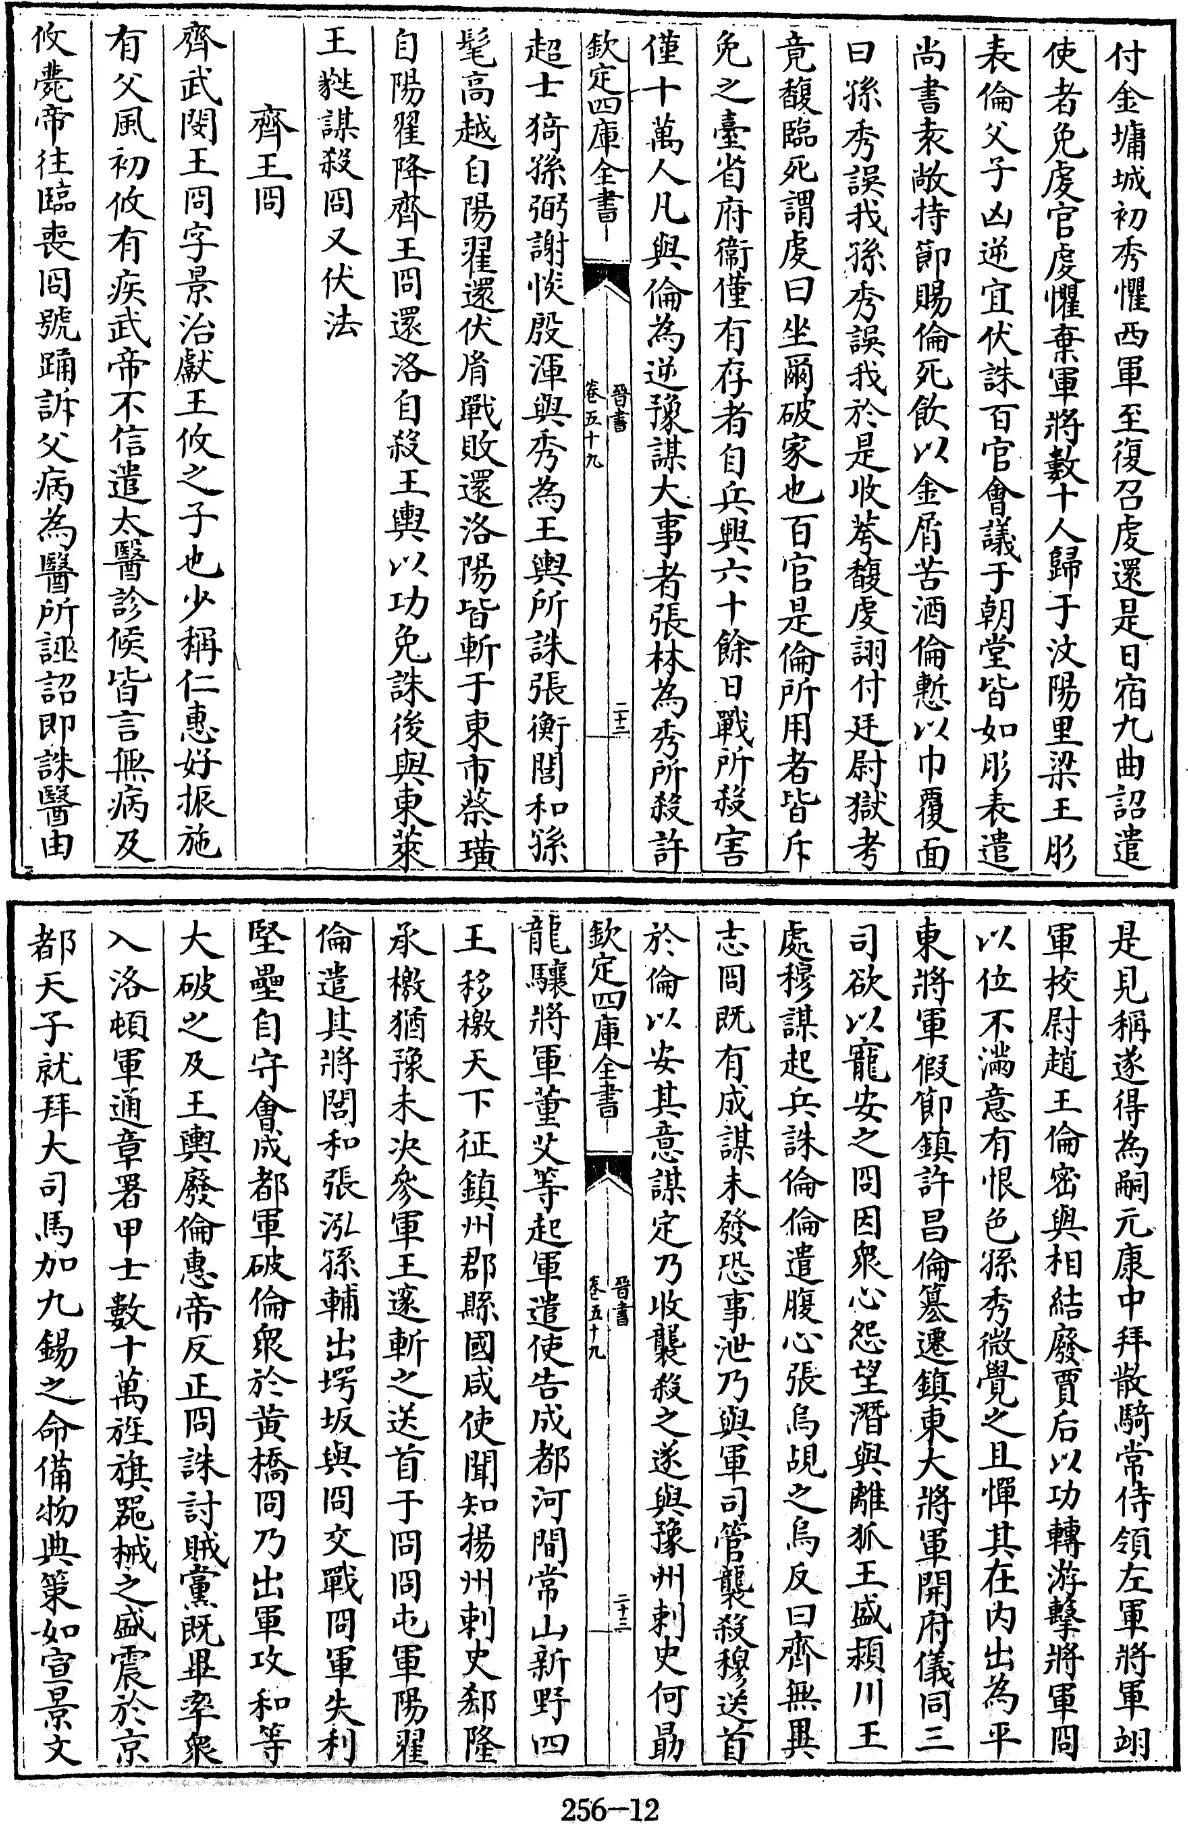 付金墉城初秀懼西軍至復召虔還是日宿九曲詔遣
使者免虔官虔懼棄軍將數十人歸于汶陽里梁王肜
表倫父子凶逆宜伏誅百官會議于朝堂皆如肜表遣
尚書袁敞持節賜倫死飲以金屑苦酒倫慙以巾覆面
曰孫秀誤我孫秀誤我於是收荂馥虔詡付廷尉獄考
竟馥臨死謂虔曰坐爾破家也百官是倫所用者皆斥
免之臺省府衞僅有存者自兵興六十餘日戰所殺害
僅十萬人凡與倫為逆豫謀大事者張林為秀所殺許
欽定四庫全書
晉書
卷五十九
二十二
超士猗孫弼謝惔殷渾與秀為王輿所誅張衡閭和孫
髦高越自陽翟還伏胤戰敗還洛陽皆斬于東市蔡璜
自陽翟降齊王冏還洛自殺王輿以功免誅後與東萊
王蕤謀殺冏又伏法
齊王冏
齊武閔王冏字景治獻王攸之子也少稱仁惠好振施
有父風初攸有疾武帝不信遣太醫診候皆言無病及
攸薨帝往臨喪冏號踊訴父病為醫所誣詔即誅醫由
是見稱遂得為嗣元康中拜散騎常侍領左軍將軍翊
軍校尉趙王倫密與相結廢賈后以功轉游擊將軍冏
以位不滿意有恨色孫秀微覺之且憚其在內出為平
東將軍假節鎮許昌倫篡遷鎮東大將軍開府儀同三
司欲以寵安之冏因衆心怨望潛與離狐王盛潁川王
處穆謀起兵誅倫倫遣腹心張烏覘之烏反曰齊無異
志冏既有成謀未發恐事泄乃與軍司管襲殺穆送首
於倫以安其意謀定乃收襲殺之遂與豫州刺史何勗
欽定四庫全書
晉書
卷五十九
二十三
龍驤將軍董艾等起軍遣使告成都河間常山新野四
王移檄天下征鎮州郡縣國咸使聞知楊州刺史郄隆
承檄猶豫未決參軍王邃斬之送首于冏冏屯軍陽翟
倫遣其將閭和張泓孫輔出堮坂與冏交戰冏軍失利
堅壘自守會成都軍破倫衆於黄橋冏乃出軍攻和等
大破之及王輿廢倫惠帝反正冏誅討賊黨既畢率衆
入洛頓軍通章署甲士數十萬旌旗器械之盛震於京
都天子就拜大司馬加九錫之命備物典策如宣景文
256—12